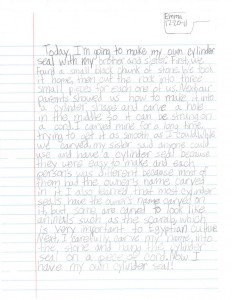 Emma
Today, I'm going to make my own cylinder
seal with my brother and sister. First, we
found a small black chunk of stone. We took
it home, then cut the rock into three
small pieces for each one of us. Next our
parents showed us how to make it into
a cylinder shape and carve a hole
in the middle so it can be strung on
a cord. I carved mine for a long time,
trying to get it as smooth as I could. While
we carved, my sister said anyone could
have a cylinder seal because
they were easy to make and each
persons was different because most of
them had the owner's name carved
in it. I also learned that most cylinder
seals have the owner's name carved on
it, but some are carved to look like
animals such as the scarab, which
is very important to Egyptian culture.
Next, I carefully carve my name into
the stone and hung the cylinder
seal on a piece of cord. Now I
have my own cylinder seal!